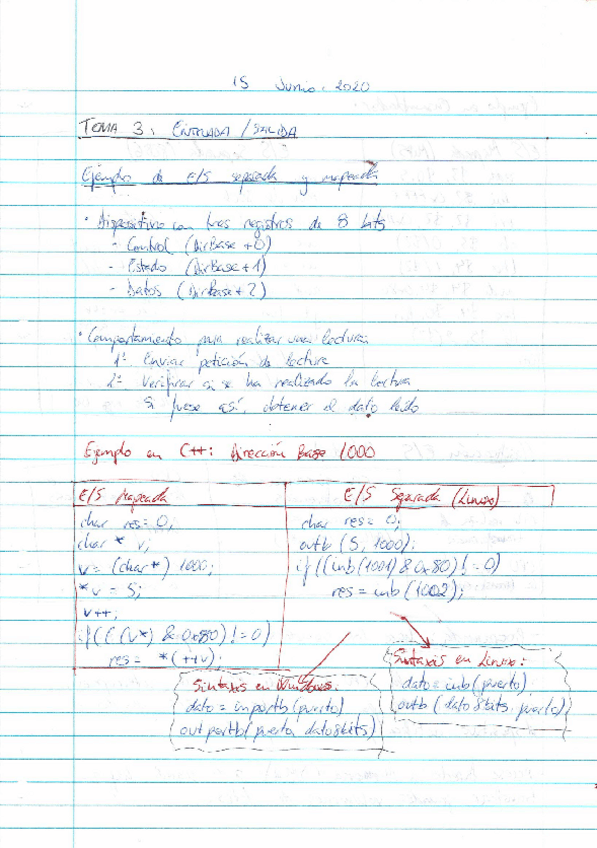 15 Junio. 2020
TEMA 3: ENTRADA / SALIDA
Ejemplo de E/S separada y mapeada
· Dispositivo con tres registros de 8 bits
- Control (DirBase + 0)
- Estado (DirBase + 1)
- Datos (DirBase + 2)
· Comportamiento para realizar una lectura
1º Enviar petición de lectura
2º Verificar si se ha realizado la lectura,
si fuese así, obtener el dato leído
Ejemplo en C++: Dirección Base 1000
E/S Mapeada
char res = 0;
char * v;
v = (char*) 1000;
*v = 5;
v++;
if(((v*) & 0x80) != 0)
res = *(++v);
E/S Separada (Linux)
char res = 0;
outb (5, 1000);
if ((inb(1001) & 0x80) != 0)
res = inb (1002);
Sintaxis en Windows:
dato = importb (puerto)
out portb (puerto, dato8bits)
Sintaxis en Linux:
dato = inb (puerto)
outb (dato 8bits, puerto)